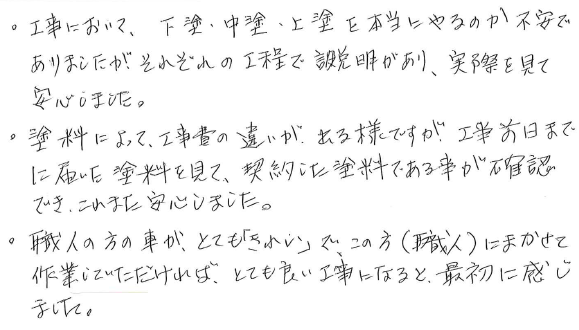 。工事において、下塗・中塗・上塗を本当にやるのか不安で
ありましたが、それぞれの工程で説明があり、実際を見て
安心しました。
。塗料によって、工事費の違いが出る様ですが、工事前日まで
に届いた塗料を見て、契約した塗料である事が確認
でき、これまた安心しました。
。職人の方の車が、とても「きれい」で、この方(職人)にまかせて
作業していただければ、とても良い工事になると、最初に感じ
ました。